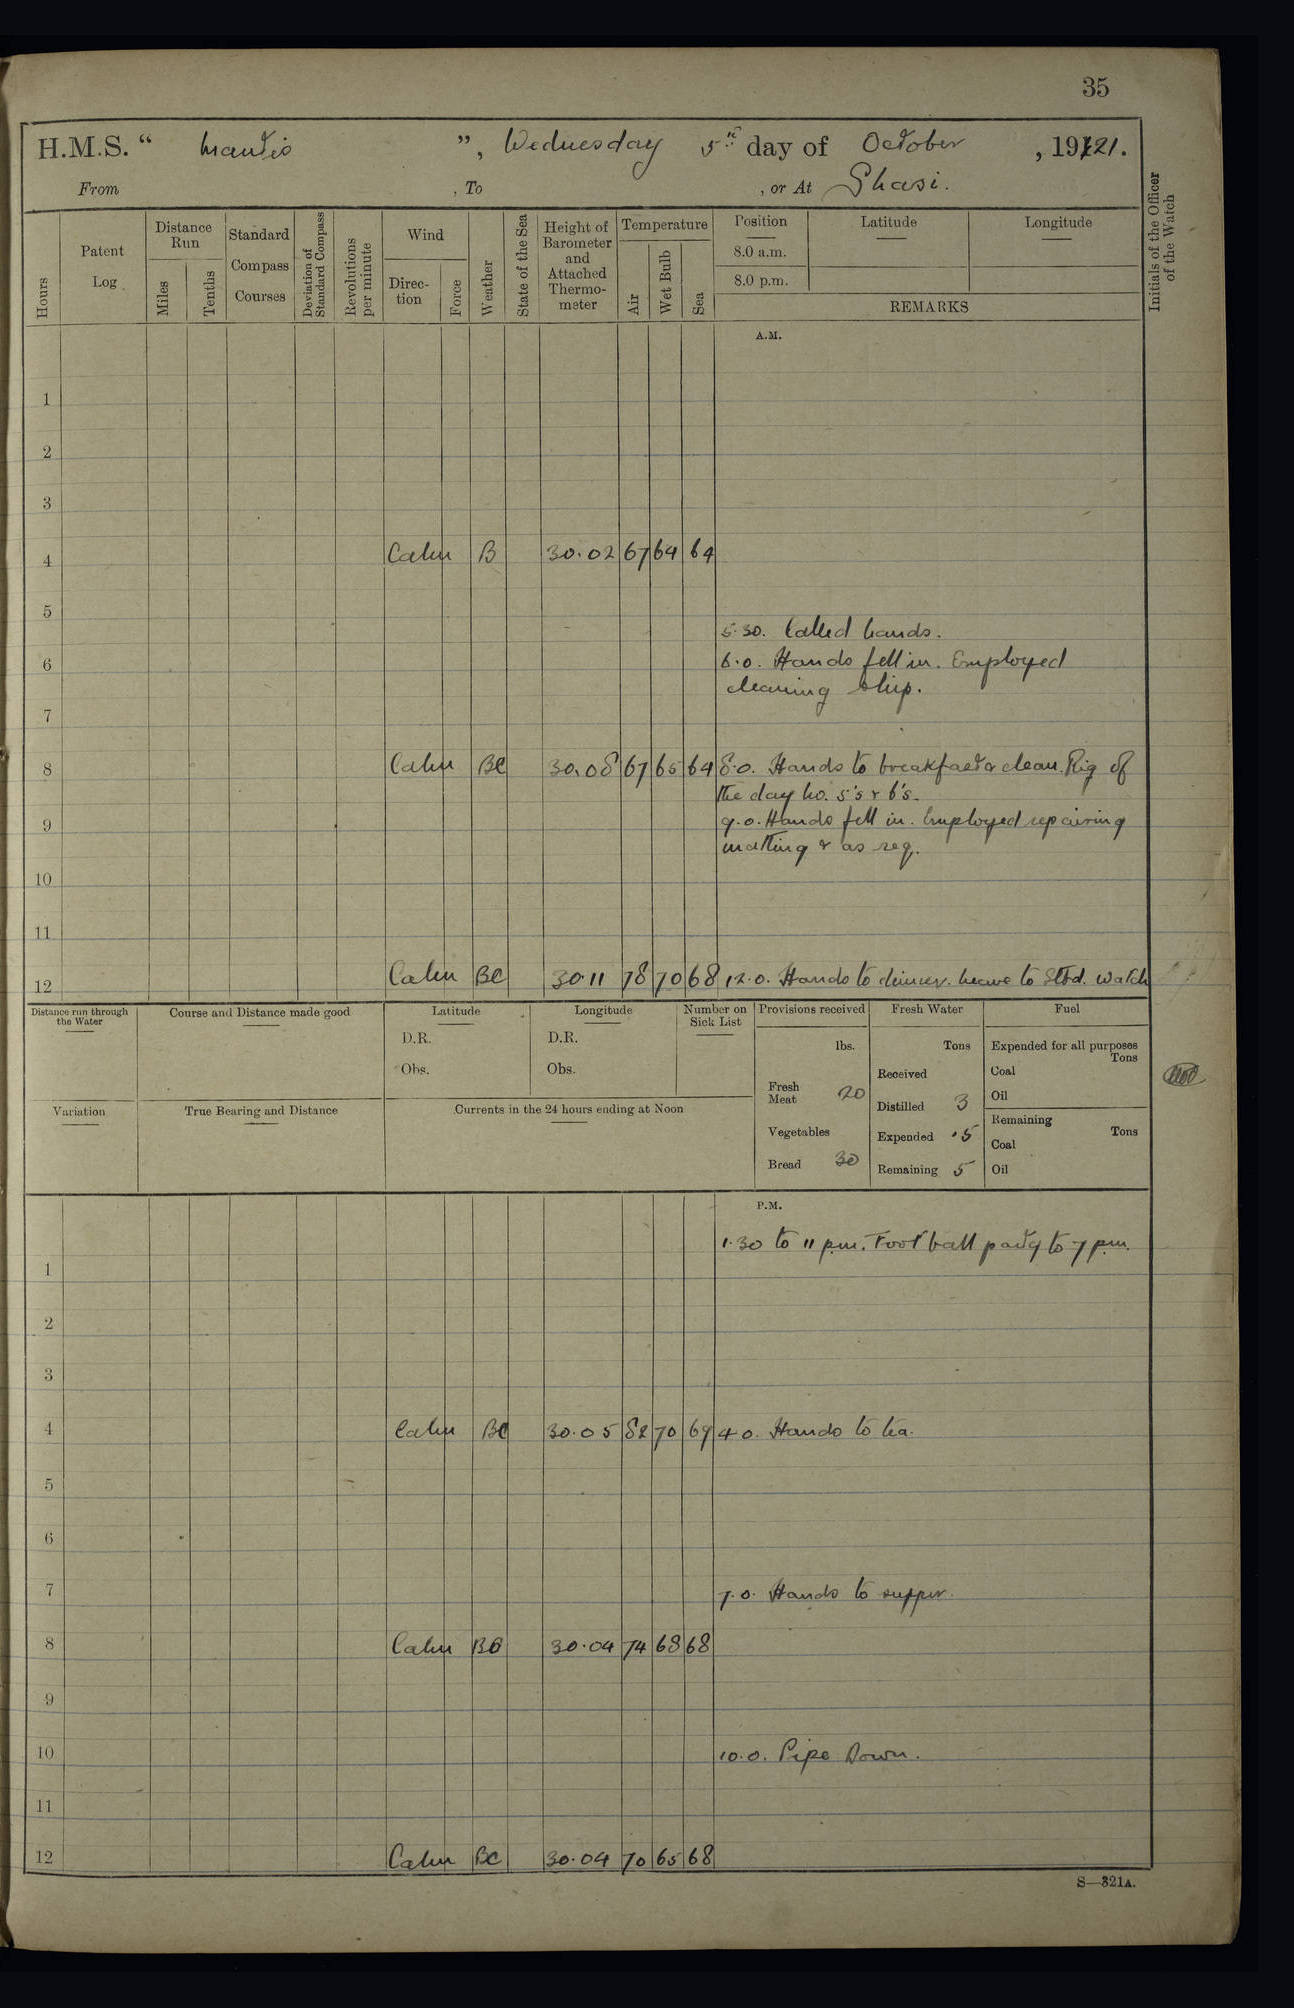 35
H.M.S. “ Mantis ”, Wednesday 5th day of October, 1921.
From , To , or At Shasi.
Hours
Patent Log
Distance Run
Miles
Tenths
Standard Compass Courses
Deviation of Standard Compass
Revolutions per minute
Wind
Direction
Force
Weather
State of the Sea
Height of Barometer and Attached Thermometer
Temperature
Air
Wet Bulb
Sea
Position
8.0 a.m.
8.0 p.m.
Latitude
Longitude
REMARKS
Initials of the Officer of the Watch
A.M.
1
2
3
4 Calm B 30.02 67 64 64
5
5.30. Called hands.
6 6.0. Hands fell in. Employed
cleaning ship.
7
8 Calm BC 30.08 67 65 64 8.0. Hands to breakfast & clean. Rig of
the day No. 5's & 6's.
9 9.0. Hands fell in. Employed repairing
matting & as req.
10
11
12 Calm BC 30.11 78 70 68 12.0. Hands to dinner. Leave to Stbd. Watch
Distance run through the Water
Course and Distance made good
Latitude
D.R.
Obs.
Longitude
D.R.
Obs.
Number on Sick List
Provisions received
lbs.
Fresh Meat 20
Vegetables
Bread 30
Fresh Water
Tons
Received
Distilled 3
Expended .5
Remaining 5
Fuel
Expended for all purposes
Tons
Coal
Oil
Remaining
Tons
Coal
Oil
Variation
True Bearing and Distance
Currents in the 24 hours ending at Noon
P.M.
1.30 to 11 p.m. Football party to 7 p.m.
1
2
3
4 Calm BC 30.05 82 70 69 4.0. Hands to tea.
5
6
7 7.0. Hands to supper.
8 Calm BC 30.04 74 68 68
9
10 10.0. Pipe Down.
11
12 Calm BC 30.04 70 65 68
S—321A.